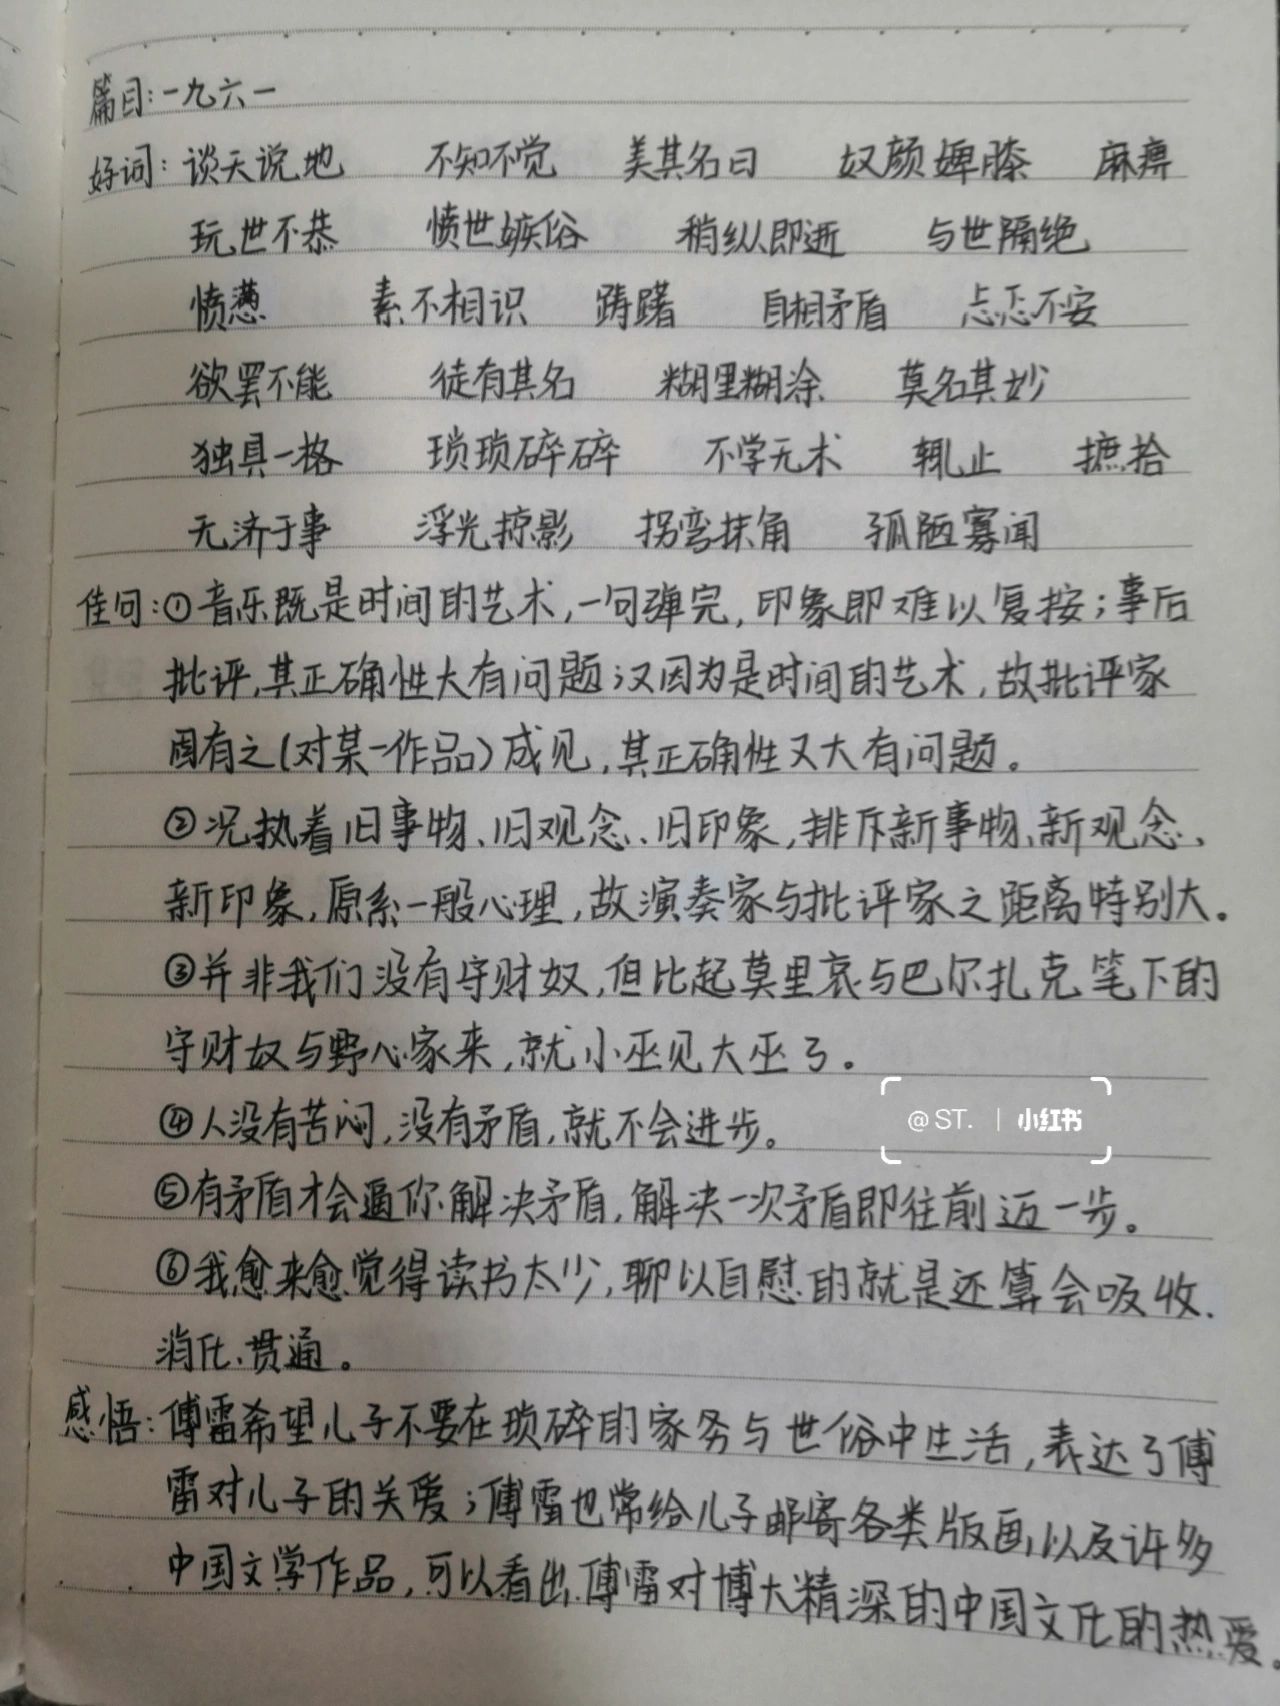 篇目：一九六一
好词：谈天说地 不知不觉 美其名曰 奴颜婢膝 麻痹
玩世不恭 愤世嫉俗 稍纵即逝 与世隔绝
愤懑 素不相识 踌躇 自相矛盾 忐忑不安
欲罢不能 徒有其名 糊里糊涂 莫名其妙
独具一格 琐琐碎碎 不学无术 辄止 摭拾
无济于事 浮光掠影 拐弯抹角 孤陋寡闻
佳句：①音乐既是时间的艺术，一句弹完，印象即难以复按；事后
批评，其正确性大有问题；又因为是时间的艺术，故批评家
固有之（对某一作品）成见，其正确性又大有问题。
②况执着旧事物、旧观念、旧印象，排斥新事物、新观念、
新印象，原系一般心理，故演奏家与批评家之距离特别大。
③并非我们没有守财奴，但比起莫里哀与巴尔扎克笔下的
守财奴与野心家来，就小巫见大巫了。
④人没有苦闷，没有矛盾，就不会进步。
@ST. | 小红书
⑤有矛盾才会逼你解决矛盾，解决一次矛盾即往前迈一步。
⑥我愈来愈觉得读书太少，聊以自慰的就是还算会吸收、
消化、贯通。
感悟：傅雷希望儿子不要在琐碎的家务与世俗中生活，表达了傅
雷对儿子的关爱；傅雷也常给儿子邮寄各类版画，以及许多
中国文学作品，可以看出傅雷对博大精深的中国文化的热爱。